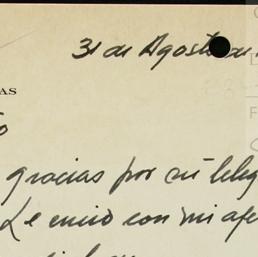 31 de Agosto de
AS
gracias por su teleg
Le envio con mi afe